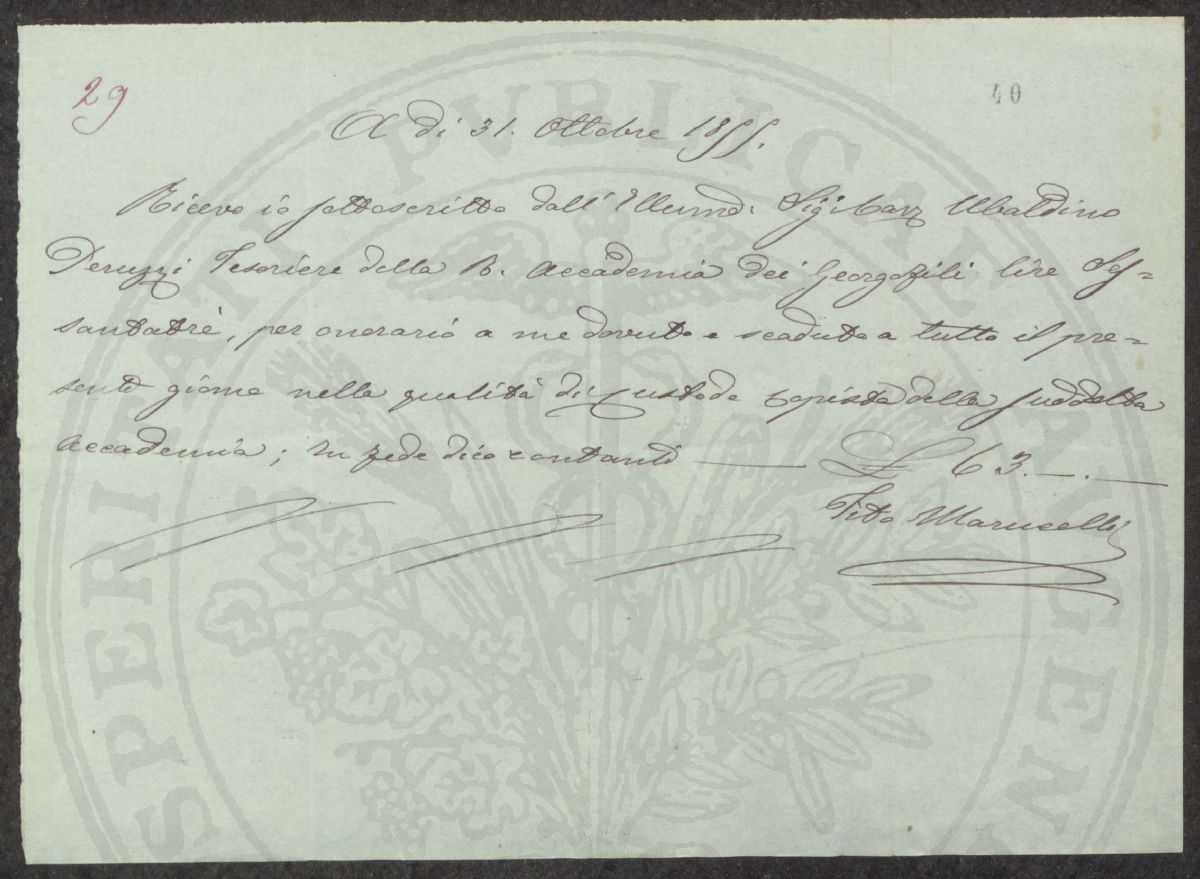 29
40
A dì 31. Ottobre 1855.
Ricevo io sottoscritto dall' Illumo: Sigr: Cavr Ubaldino
Peruzzi Tesoriere della R. Accademia dei Georgofili lire Ses=
santatrè, per onorario a me dovuto e scaduto a tutto il pre=
sente giorno nella qualità di Custode Copista della suddetta
Accademia; In fede dico contanti — £ 63. —. —
Tito Maruselli
PROSPERITATI PVBLICAE AVGENDAE